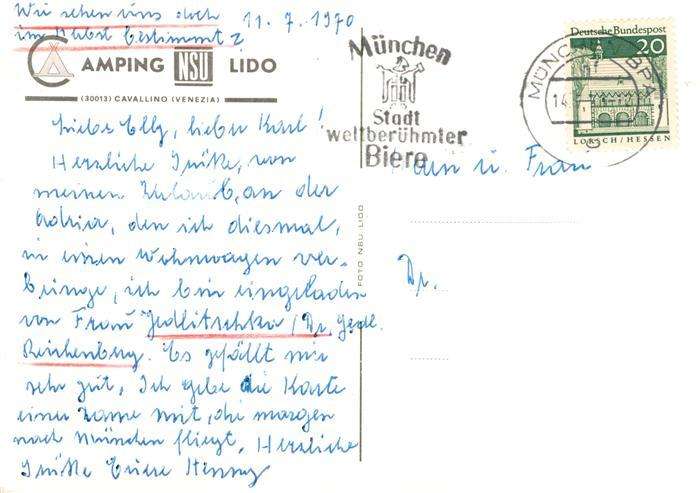 Wir sehen uns doch 11.7.1970
im Herbst bestimmt?
CAMPING NSU LIDO
(30013) CAVALLINO (VENEZIA)
Liebe Elly, lieber Karl!
Herzliche Grüße, von
meinen Urlaub, an der
Adria, den ich diesmal,
in einen Wohnwagen ver-
bringe, ich bin eingeladen
von Frau Jedlitschka / Dr. Jedl.
Reichenberg. Es gefällt mir
sehr gut, Ich gebe die Karte
einer Dame mit, die morgen
nach München fliegt, Herzliche
Grüße Euere Henny
FOTO NSU. LIDO
München
Stadt
weltberühmter
Biere
MÜNCHEN BPA
14.
Deutsche Bundespost
20
LORSCH/HESSEN
u. Frau
Dr.